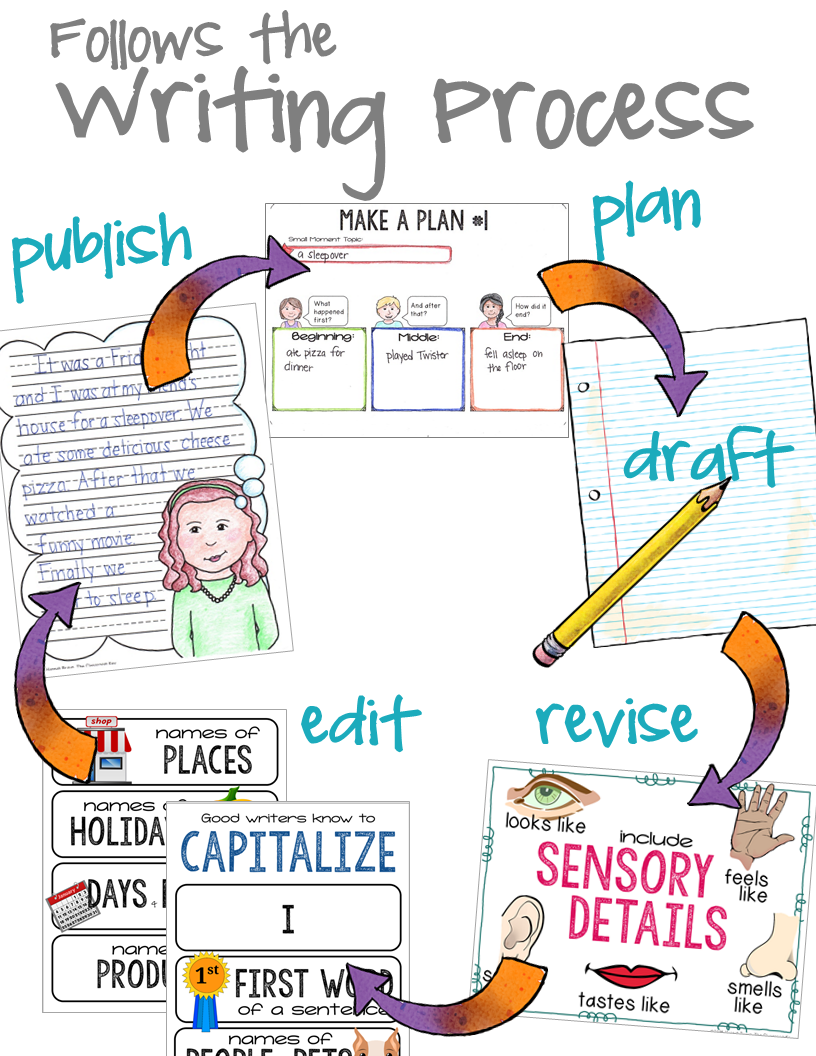 Follows the
Writing Process
plan
publish
MAKE A PLAN #1
Small Moment Topic:
a sleepover
What
happened
first?
And after
that?
How did it
end?
Beginning:
Middle:
End:
ate pizza for
dinner
played Twister
fell asleep on
the floor
It was a
and I was at my
house for a sleepover. We
ate some delicious cheese
pizza. After that we
watched a
funny movie
Finally we
to sleep.
draft
edit
revise
shop
names of
PLACES
names
January
DAYS
Good writers know to
CAPITALIZE
I
1st
FIRST WORD
of a sentence
names of
PEOPLE, PETS
looks like
include
SENSORY
DETAILS
feels
like
tastes like
smells
like